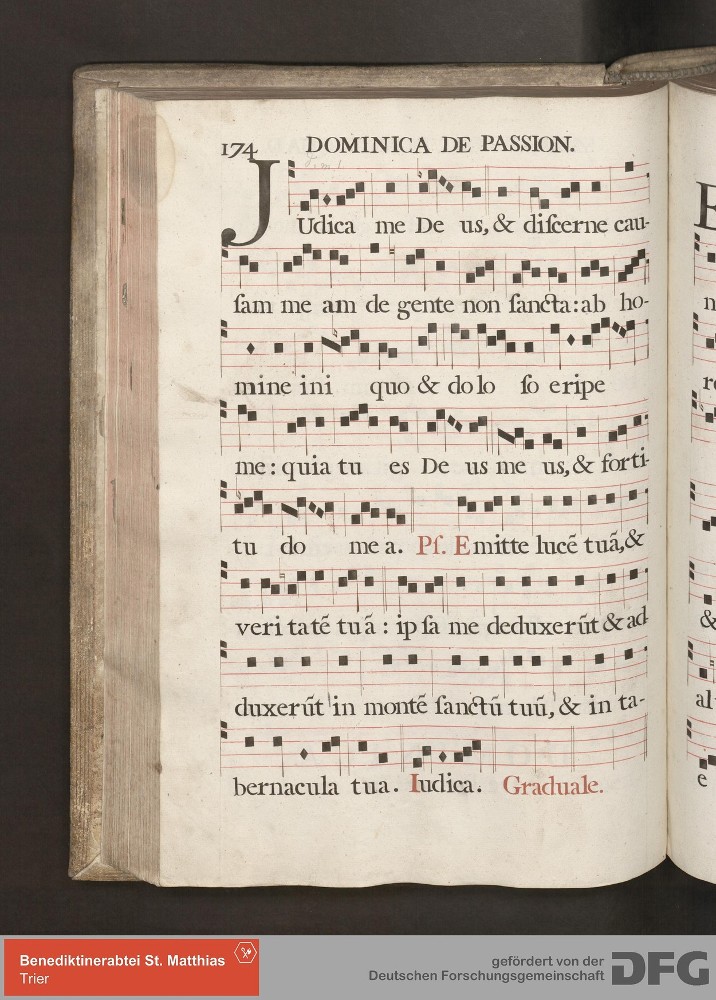 174 DOMINICA DE PASSION.
JUdica me De us, & diſcerne cau-
ſam me am de gente non ſancta: ab ho-
mine ini quo & do lo ſo eripe
me: quia tu es De us me us, & forti-
tu do me a. Pſ. Emitte lucē tuā, &
veri tatē tuā: ip ſa me deduxerūt & ad-
duxerūt in montē ſanctū tuū, & in ta-
bernacula tua. Iudica. Graduale.
n
r
&
al
e
Benediktinerabtei St. Matthias
Trier
gefördert von der
Deutschen Forschungsgemeinschaft
DFG